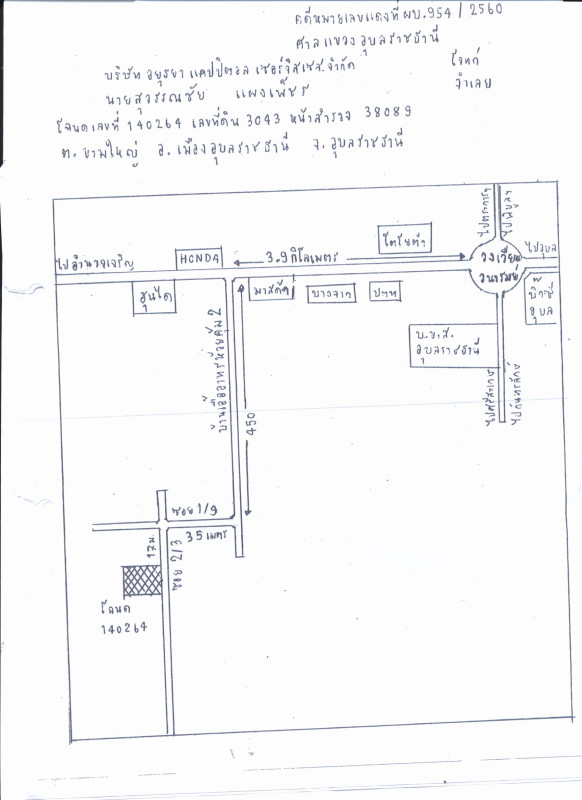 คดีหมายเลขแดงที่ ผบ.954 / 2560
ศาลแขวงอุบลราชธานี
บริษัท อยุธยา แคปปิตอล เซอร์วิสเซส จำกัด โจทก์
นายสุวรรณชัย แผงเพ็ชร จำเลย
โฉนดเลขที่ 140264 เลขที่ดิน 3043 หน้าสำรวจ 38089
ต. ขามใหญ่ อ. เมืองอุบลราชธานี จ. อุบลราชธานี
ไปตระการฯ
ไปพิบูลฯ
ไปอำนาจเจริญ
HONDA
3.9 กิโลเมตร
โตโยต้า
วงเวียน
วนารมย์
ไปอุบล
ฮุนได
มาสด้า
บางจาก
ปตท
บิ๊กซี
อุบล
บ.ข.ส.
อุบลราชธานี
บ้านเอื้ออาทรห้วยคุ้ม 2
450
ไปศรีสะเกษ
ไปกันทรลักษ์
ซอย 1/9
35 เมตร
17 ม.
ซอย 2/3
โฉนด
140264